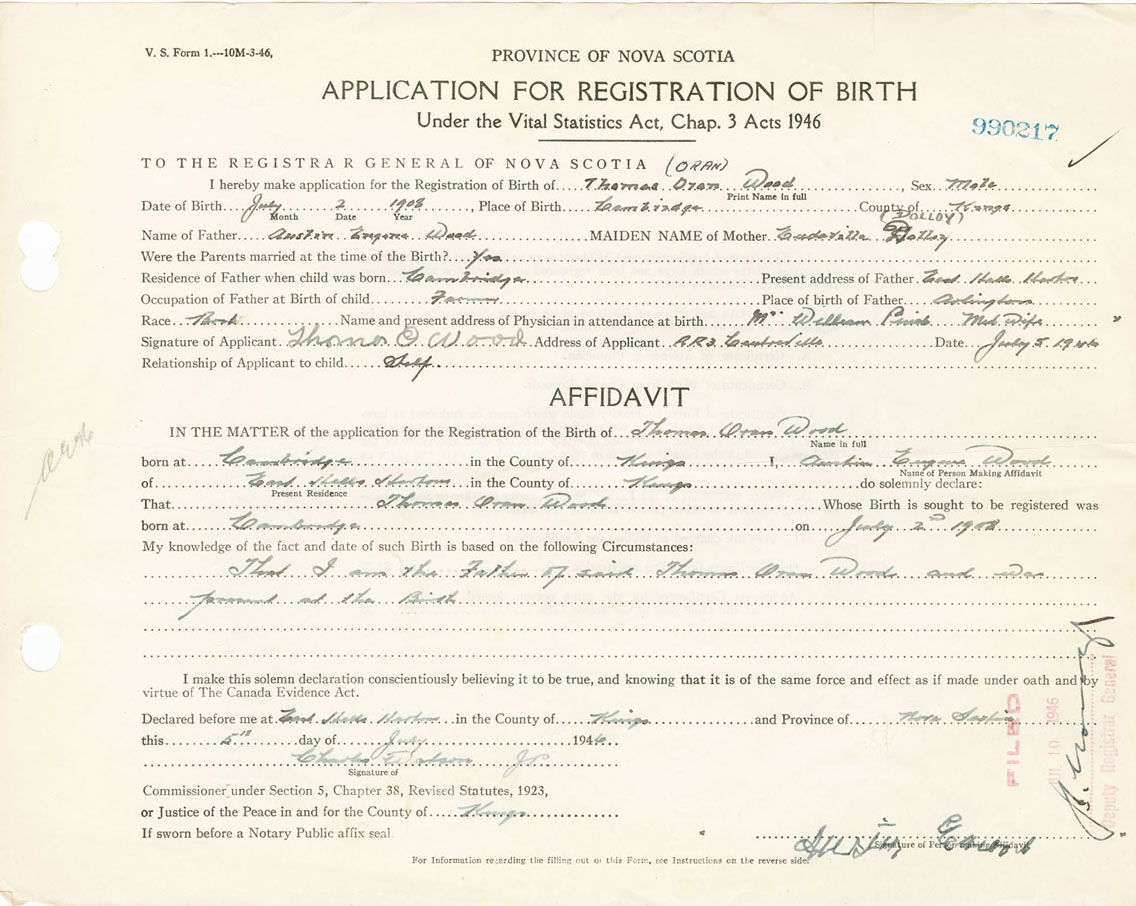 V. S. Form 1.---10M-3-46,
PROVINCE OF NOVA SCOTIA
APPLICATION FOR REGISTRATION OF BIRTH
Under the Vital Statistics Act, Chap. 3 Acts 1946
990217
TO THE REGISTRAR GENERAL OF NOVA SCOTIA (ORAN)
I hereby make application for the Registration of Birth of Thomas Oran Wood, Sex Male
Print Name in full
Date of Birth July 2 1908, Place of Birth Cambridge County of Kings
Month Date Year
(DOLLOY)
Name of Father Austin Eugene Wood MAIDEN NAME of Mother
Were the Parents married at the time of the Birth? Yes
Residence of Father when child was born Cambridge Present address of Father East Halls Harbor
Occupation of Father at Birth of child Farmer Place of birth of Father Arlington
Race Name and present address of Physician in attendance at birth Mrs William Mid Wife
Signature of Applicant Thomas O Wood Address of Applicant R.R.3 Centreville Date July 5 1946
Relationship of Applicant to child Self
AFFIDAVIT
IN THE MATTER of the application for the Registration of the Birth of Thomas Oran Wood
Name in full
born at Cambridge in the County of Kings I, Austin Eugene Wood
Name of Person Making Affidavit
of East Halls Harbour in the County of Kings do solemnly declare:
Present Residence
That Thomas Oran Wood Whose Birth is sought to be registered was
born at Cambridge on July 2nd 1908
My knowledge of the fact and date of such Birth is based on the following Circumstances:
That I am the Father of said Thomas Oran Wood and was
present at the Birth
I make this solemn declaration conscientiously believing it to be true, and knowing that it is of the same force and effect as if made under oath and by
virtue of The Canada Evidence Act.
Declared before me at East Halls Harbor in the County of Kings and Province of Nova Scotia
this 5th day of July 1946
Charles JP
Signature of
Commissioner under Section 5, Chapter 38, Revised Statutes, 1923,
or Justice of the Peace in and for the County of Kings
If sworn before a Notary Public affix seal.
Signature of Person making Affidavit
For Information regarding the filling out of this Form, see Instructions on the reverse side.
FILED
JUL 10 1946
Deputy Registrar General